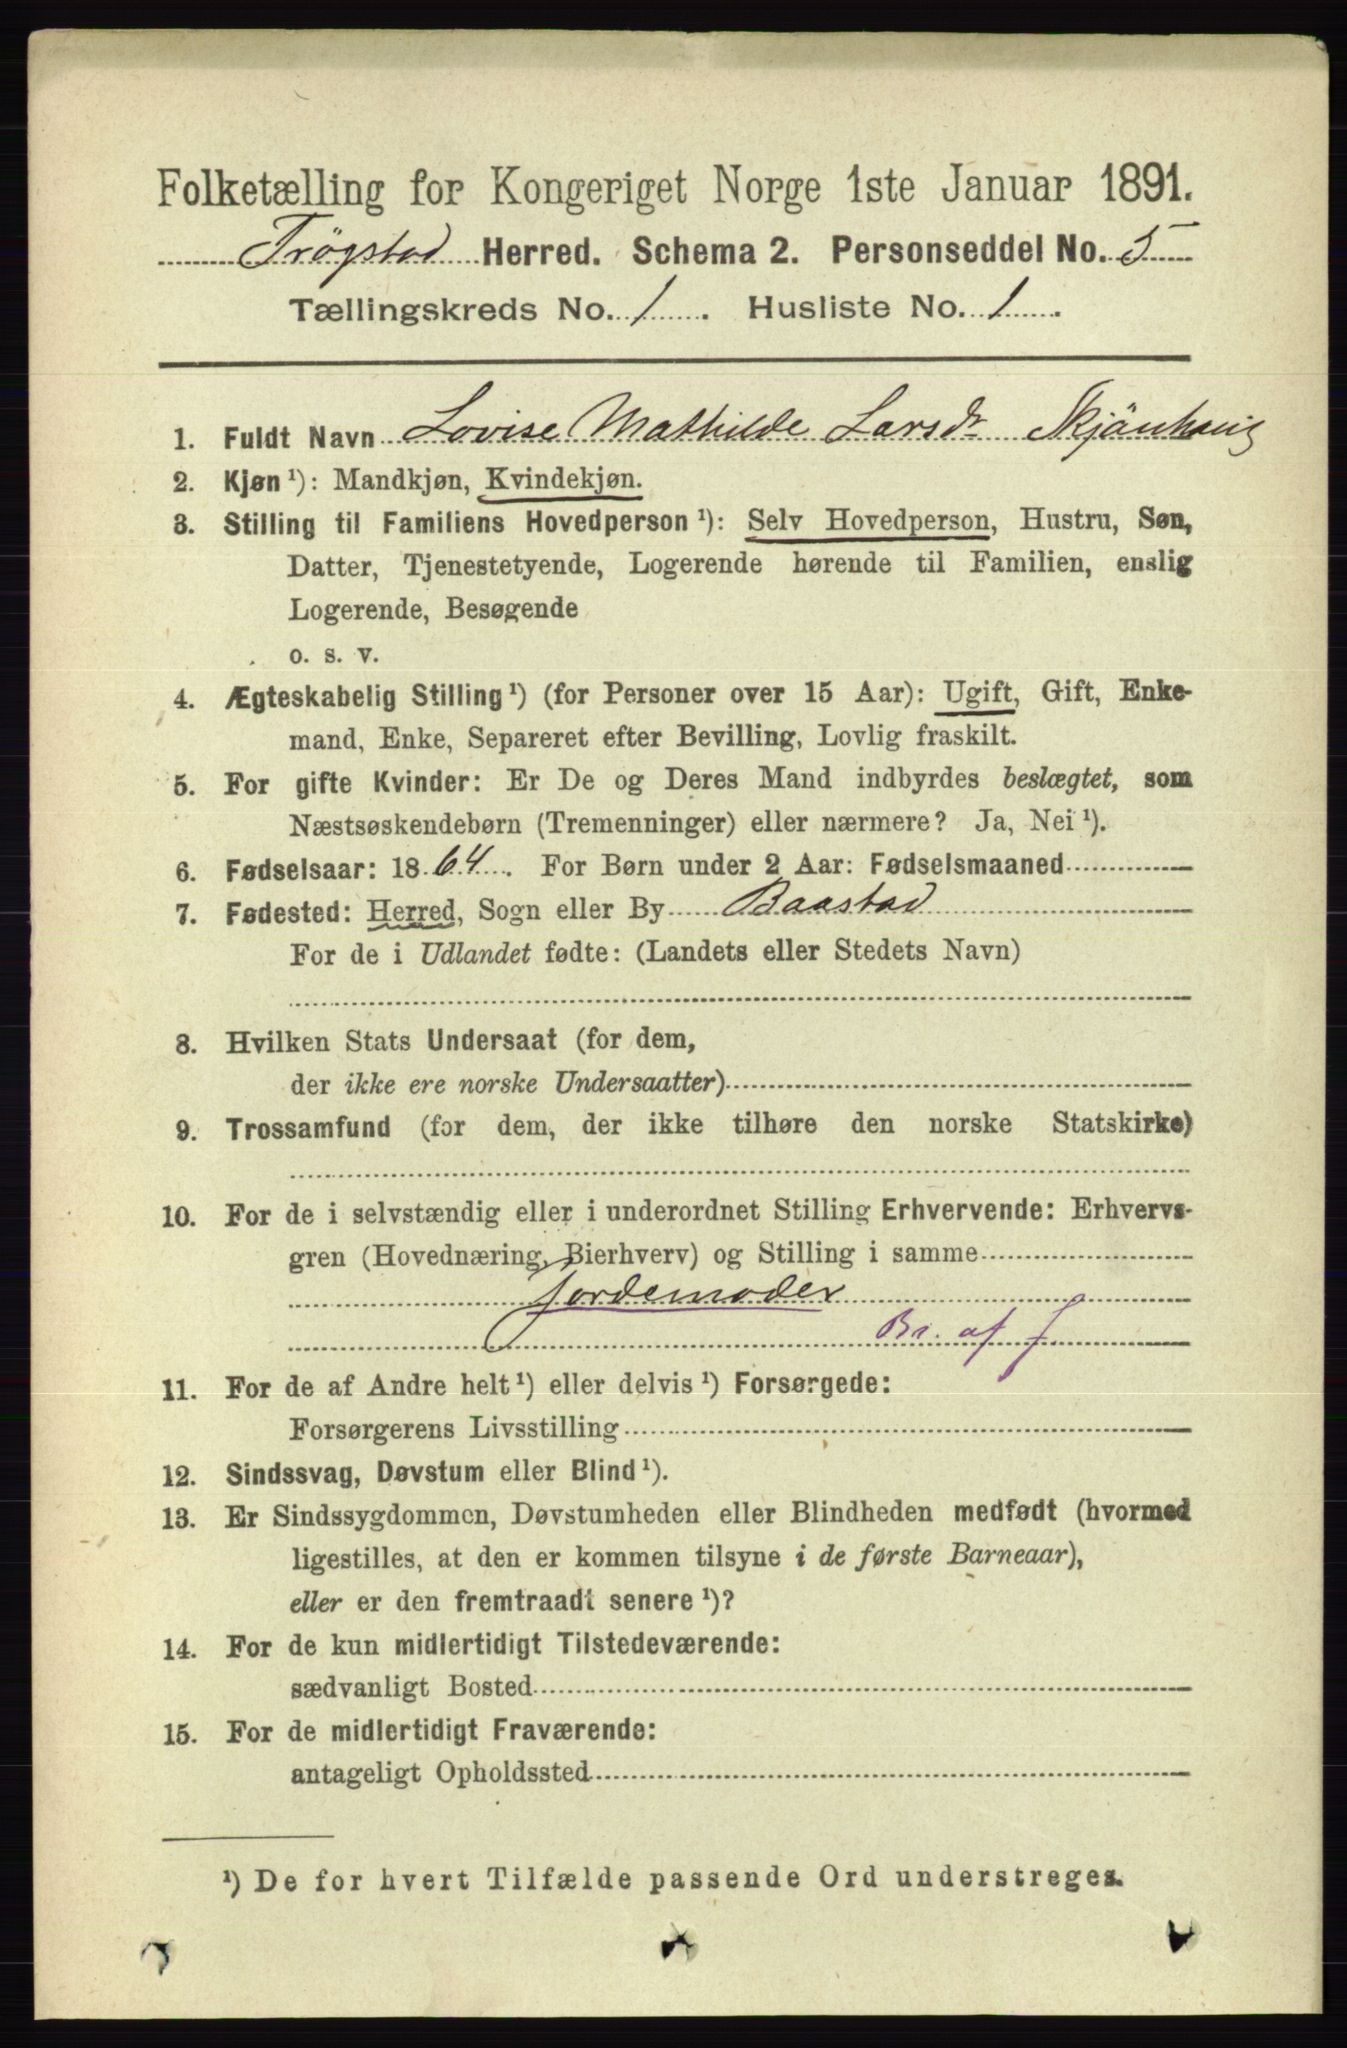 Folketælling for Kongeriget Norge 1ste Januar 1891.
Trögstad Herred. Schema 2. Personseddel No. 5
Tællingskreds No. 1. Husliste No. 1.
1. Fuldt Navn Lovise Mathilde Larsdr Skjönhaug
2. Kjøn¹): Mandkjøn, Kvindekjøn.
3. Stilling til Familiens Hovedperson¹): Selv Hovedperson, Hustru, Søn,
Datter, Tjenestetyende, Logerende hørende til Familien, enslig
Logerende, Besøgende
o. s. v.
4. Ægteskabelig Stilling¹) (for Personer over 15 Aar): Ugift, Gift, Enke-
mand, Enke, Separeret efter Bevilling, Lovlig fraskilt.
5. For gifte Kvinder: Er De og Deres Mand indbyrdes beslægtet, som
Næstsøskendebørn (Tremenninger) eller nærmere? Ja, Nei¹).
6. Fødselsaar: 1864. For Børn under 2 Aar: Fødselsmaaned
7. Fødested: Herred, Sogn eller By Baastad
For de i Udlandet fødte: (Landets eller Stedets Navn)
8. Hvilken Stats Undersaat (for dem,
der ikke ere norske Undersaatter)
9. Trossamfund (for dem, der ikke tilhøre den norske Statskirke)
10. For de i selvstændig eller i underordnet Stilling Erhvervende: Erhvervs-
gren (Hovednæring, Bierhverv) og Stilling i samme
Jordemoder
Br. af J.
11. For de af Andre helt¹) eller delvis¹) Forsørgede:
Forsørgerens Livsstilling
12. Sindssvag, Døvstum eller Blind¹).
13. Er Sindssygdommen, Døvstumheden eller Blindheden medfødt (hvormed
ligestilles, at den er kommen tilsyne i de første Barneaar),
eller er den fremtraadt senere¹)?
14. For de kun midlertidigt Tilstedeværende:
sædvanligt Bosted
15. For de midlertidigt Fraværende:
antageligt Opholdssted
¹) De for hvert Tilfælde passende Ord understreges.